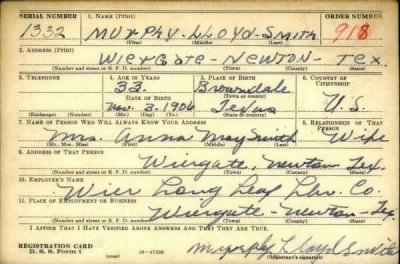 SERIAL NUMBER 1. NAME (Print) ORDER NUMBER
1332 MURPHY-LLOYD-SMITH 918
(First) (Middle) (Last)
2. ADDRESS (Print)
WIERGATE-NEWTON-TEX.
(Number and street or R. F. D. number) (Town) (County) (State)
3. TELEPHONE 4. AGE IN YEARS 5. PLACE OF BIRTH 6. COUNTRY OF CITIZENSHIP
33 Browndale
DATE OF BIRTH (Town or county)
Nov. 3. 1906 Texas U.S.
(Exchange) (Number) (Mo.) (Day) (Yr.) (State or country)
7. NAME OF PERSON WHO WILL ALWAYS KNOW YOUR ADDRESS 8. RELATIONSHIP OF THAT PERSON
Mrs. Anna May Smith Wife
(Mr., Mrs., Miss) (First) (Middle) (Last)
9. ADDRESS OF THAT PERSON
Wiergate, Newton Tex.
(Number and street or R. F. D. number) (Town) (County) (State)
10. EMPLOYER'S NAME
Wier Long Leaf Lbr. Co.
11. PLACE OF EMPLOYMENT OR BUSINESS
Wiergate-Newton-Tex.
(Number and street or R. F. D. number) (Town) (County) (State)
I AFFIRM THAT I HAVE VERIFIED ABOVE ANSWERS AND THAT THEY ARE TRUE.
REGISTRATION CARD
D. S. S. Form 1 16-17105 Murphy Lloyd Smith
(Registrant's signature)